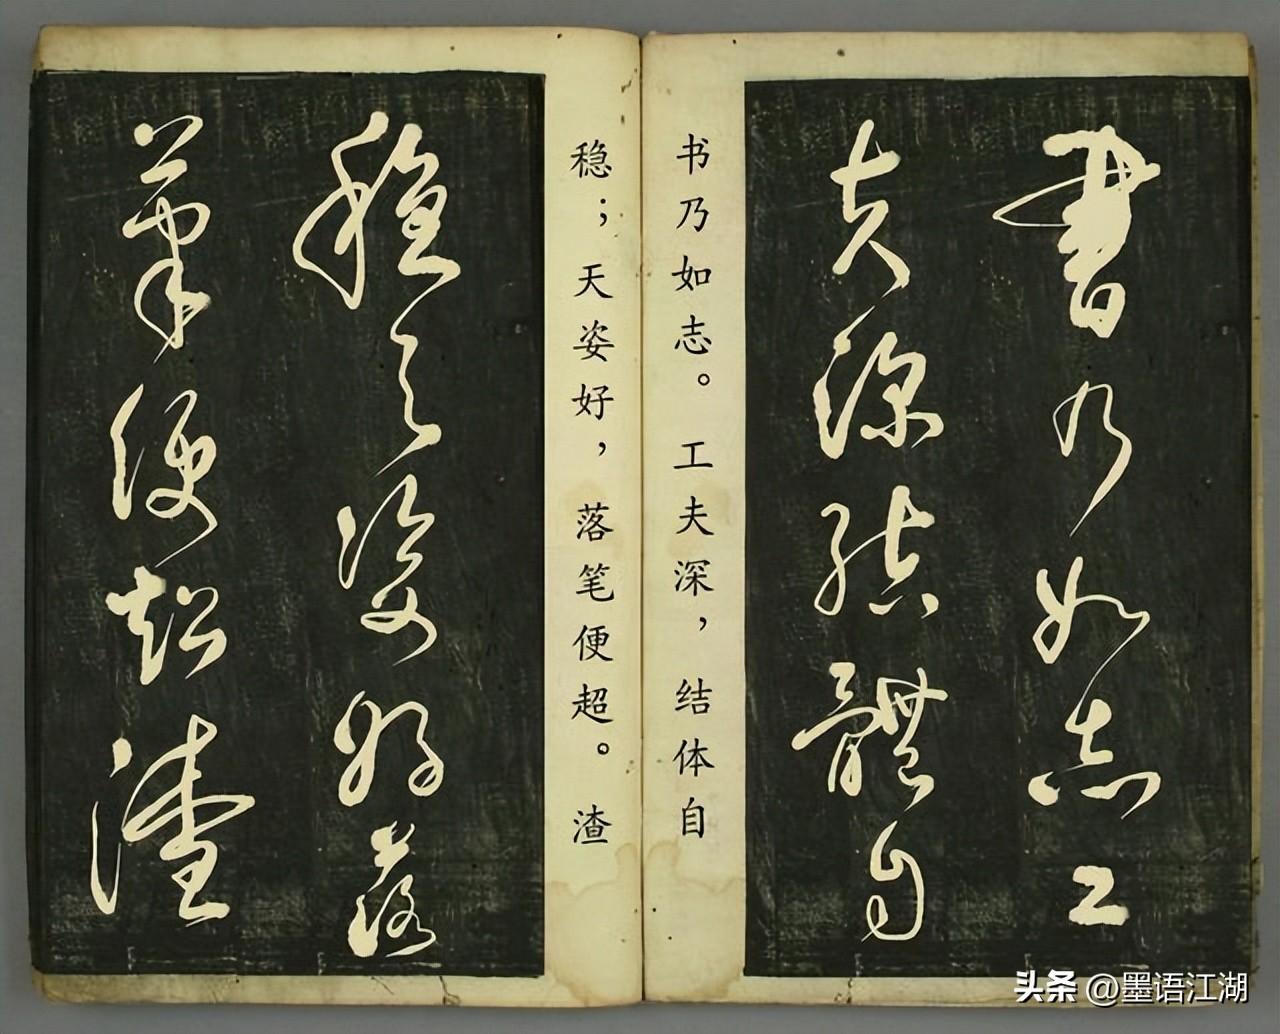 書乃如志工
夫深結體自
书乃如志。工夫深，结体自
稳；天姿好，落笔便超。渣
穩天姿好落
筆便超渣
头条 @墨语江湖